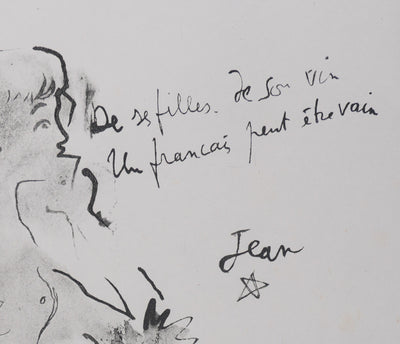 De ses filles. de son vin
Un francais peut être vain
Jean